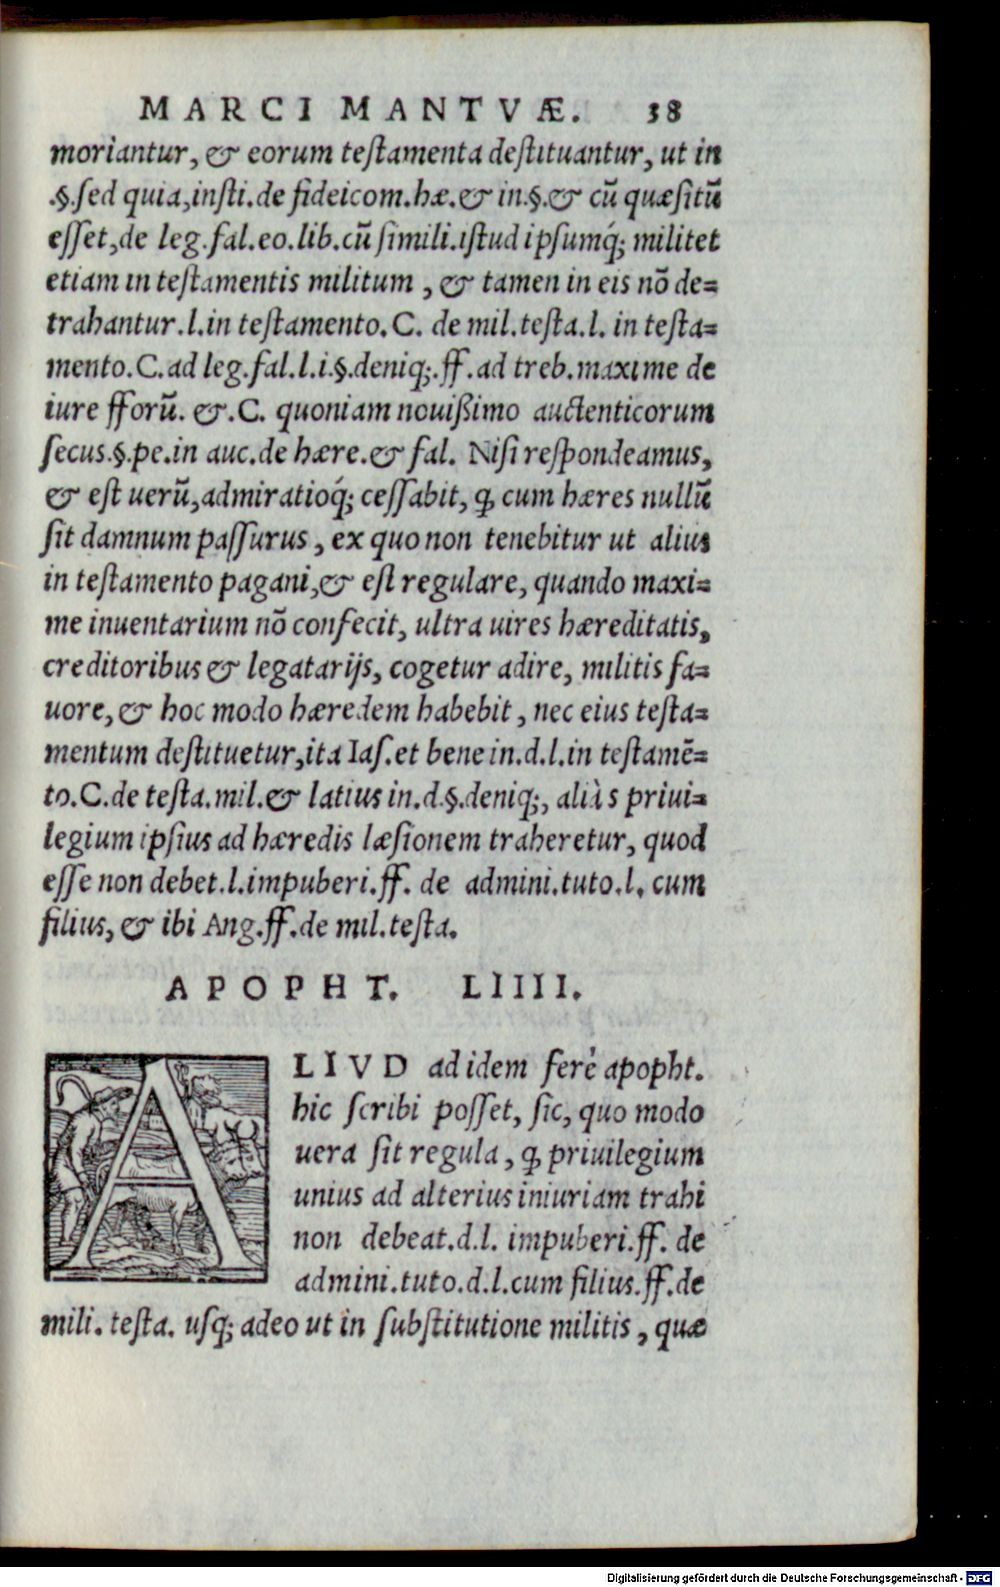 MARCI MANTVÆ. 38
moriantur, & eorum teſtamenta deſtituantur, ut in
.§.ſed quia,inſti.de fideicom.hæ.& in.§.& cũ quæſitũ
eſſet,de leg.fal.eo.lib.cũ ſimili.iſtud ipſumq́; militet
etiam in teſtamentis militum , & tamen in eis nõ de=
trahantur.l.in teſtamento.C. de mil.teſta.l. in teſta=
mento.C.ad leg.fal.l.i.§.deniq;.ff.ad treb.maxime de
iure fforũ. &.C. quoniam nouißimo auctenticorum
ſecus.§.pe.in auc.de hære.& fal. Niſi reſpondeamus,
& eſt uerũ,admiratioq́; ceſſabit, ꝙ cum hæres nullũ
ſit damnum paſſurus , ex quo non tenebitur ut alius
in teſtamento pagani,& eſt regulare, quando maxi=
me inuentarium nõ confecit, ultra uires hæreditatis,
creditoribus & legatarijs, cogetur adire, militis fa=
uore, & hoc modo hæredem habebit , nec eius teſta=
mentum deſtituetur,ita Iaſ.et bene in.d.l.in teſtamẽ=
to.C.de teſta.mil.& latius in.d.§.deniq;, aliàs priui=
legium ipſius ad hæredis læſionem traheretur, quod
eſſe non debet.l.impuberi.ff. de admini.tuto.l. cum
filius, & ibi Ang.ff.de mil.teſta.
APOPHT. LIIII.
ALIVD ad idem ferè apopht.
hic ſcribi poſſet, ſic, quo modo
uera ſit regula , ꝙ priuilegium
unius ad alterius iniuriam trahi
non debeat.d.l. impuberi.ff. de
admini.tuto.d.l.cum filius.ff.de
mili. teſta. uſq; adeo ut in ſubſtitutione militis , quæ
Digitalisierung gefördert durch die Deutsche Forschungsgemeinschaft - DFG